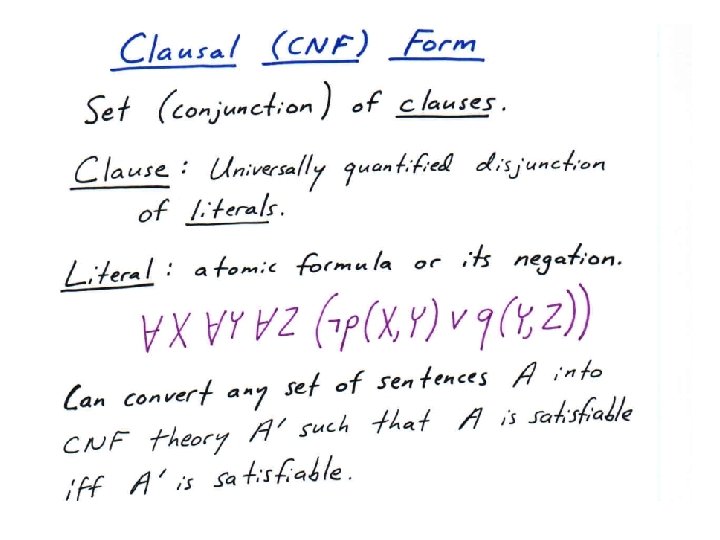 Clausal (CNF) Form
Set (conjunction) of clauses.
Clause: Universally quantified disjunction
of literals.
Literal: atomic formula or its negation.
∀X ∀Y ∀Z (¬p(X,Y) ∨ q(Y,Z))
Can convert any set of sentences A into
CNF theory A' such that A is satisfiable
iff A' is satisfiable.